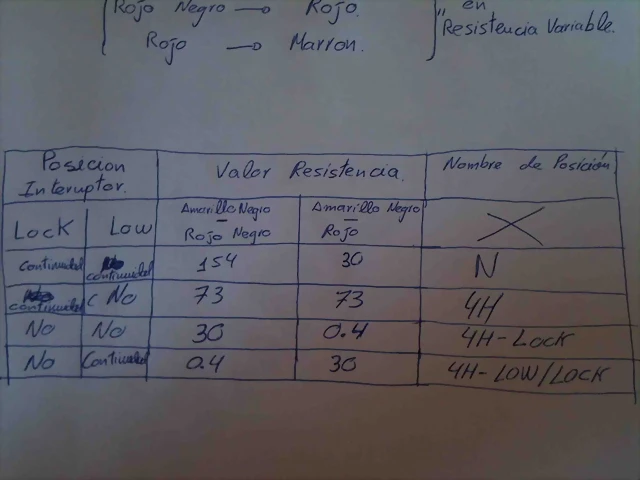 Rojo Negro → Rojo.
Rojo → Marron.
" en
Resistencia Variable.
Posicion Interuptor. Valor Resistencia. Nombre de Posición
Lock Low Amarillo Negro - Rojo Negro Amarillo Negro - Rojo X
Continuidad continuidad 154 30 N
continuidad c No 73 73 4H
No No 30 0.4 4H-Lock
No Continuidad 0.4 30 4H-LOW/LOCK